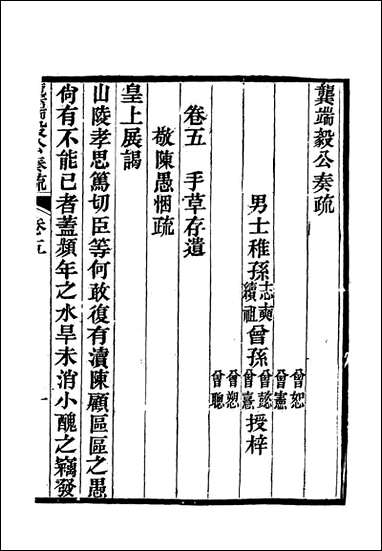 龔端毅公奏疏
男士稚孫志奭續祖曾孫曾恕曾憲曾懿曾熹曾愬曾聰授梓
卷五 手草存遺
敬陳愚悃疏
皇上展謁
山陵孝思篤切臣等何敢復有瀆陳顧區區之愚
尙有不能已者蓋頻年之水旱未消小醜之竊發
龔端毅公奏疏 卷五 一